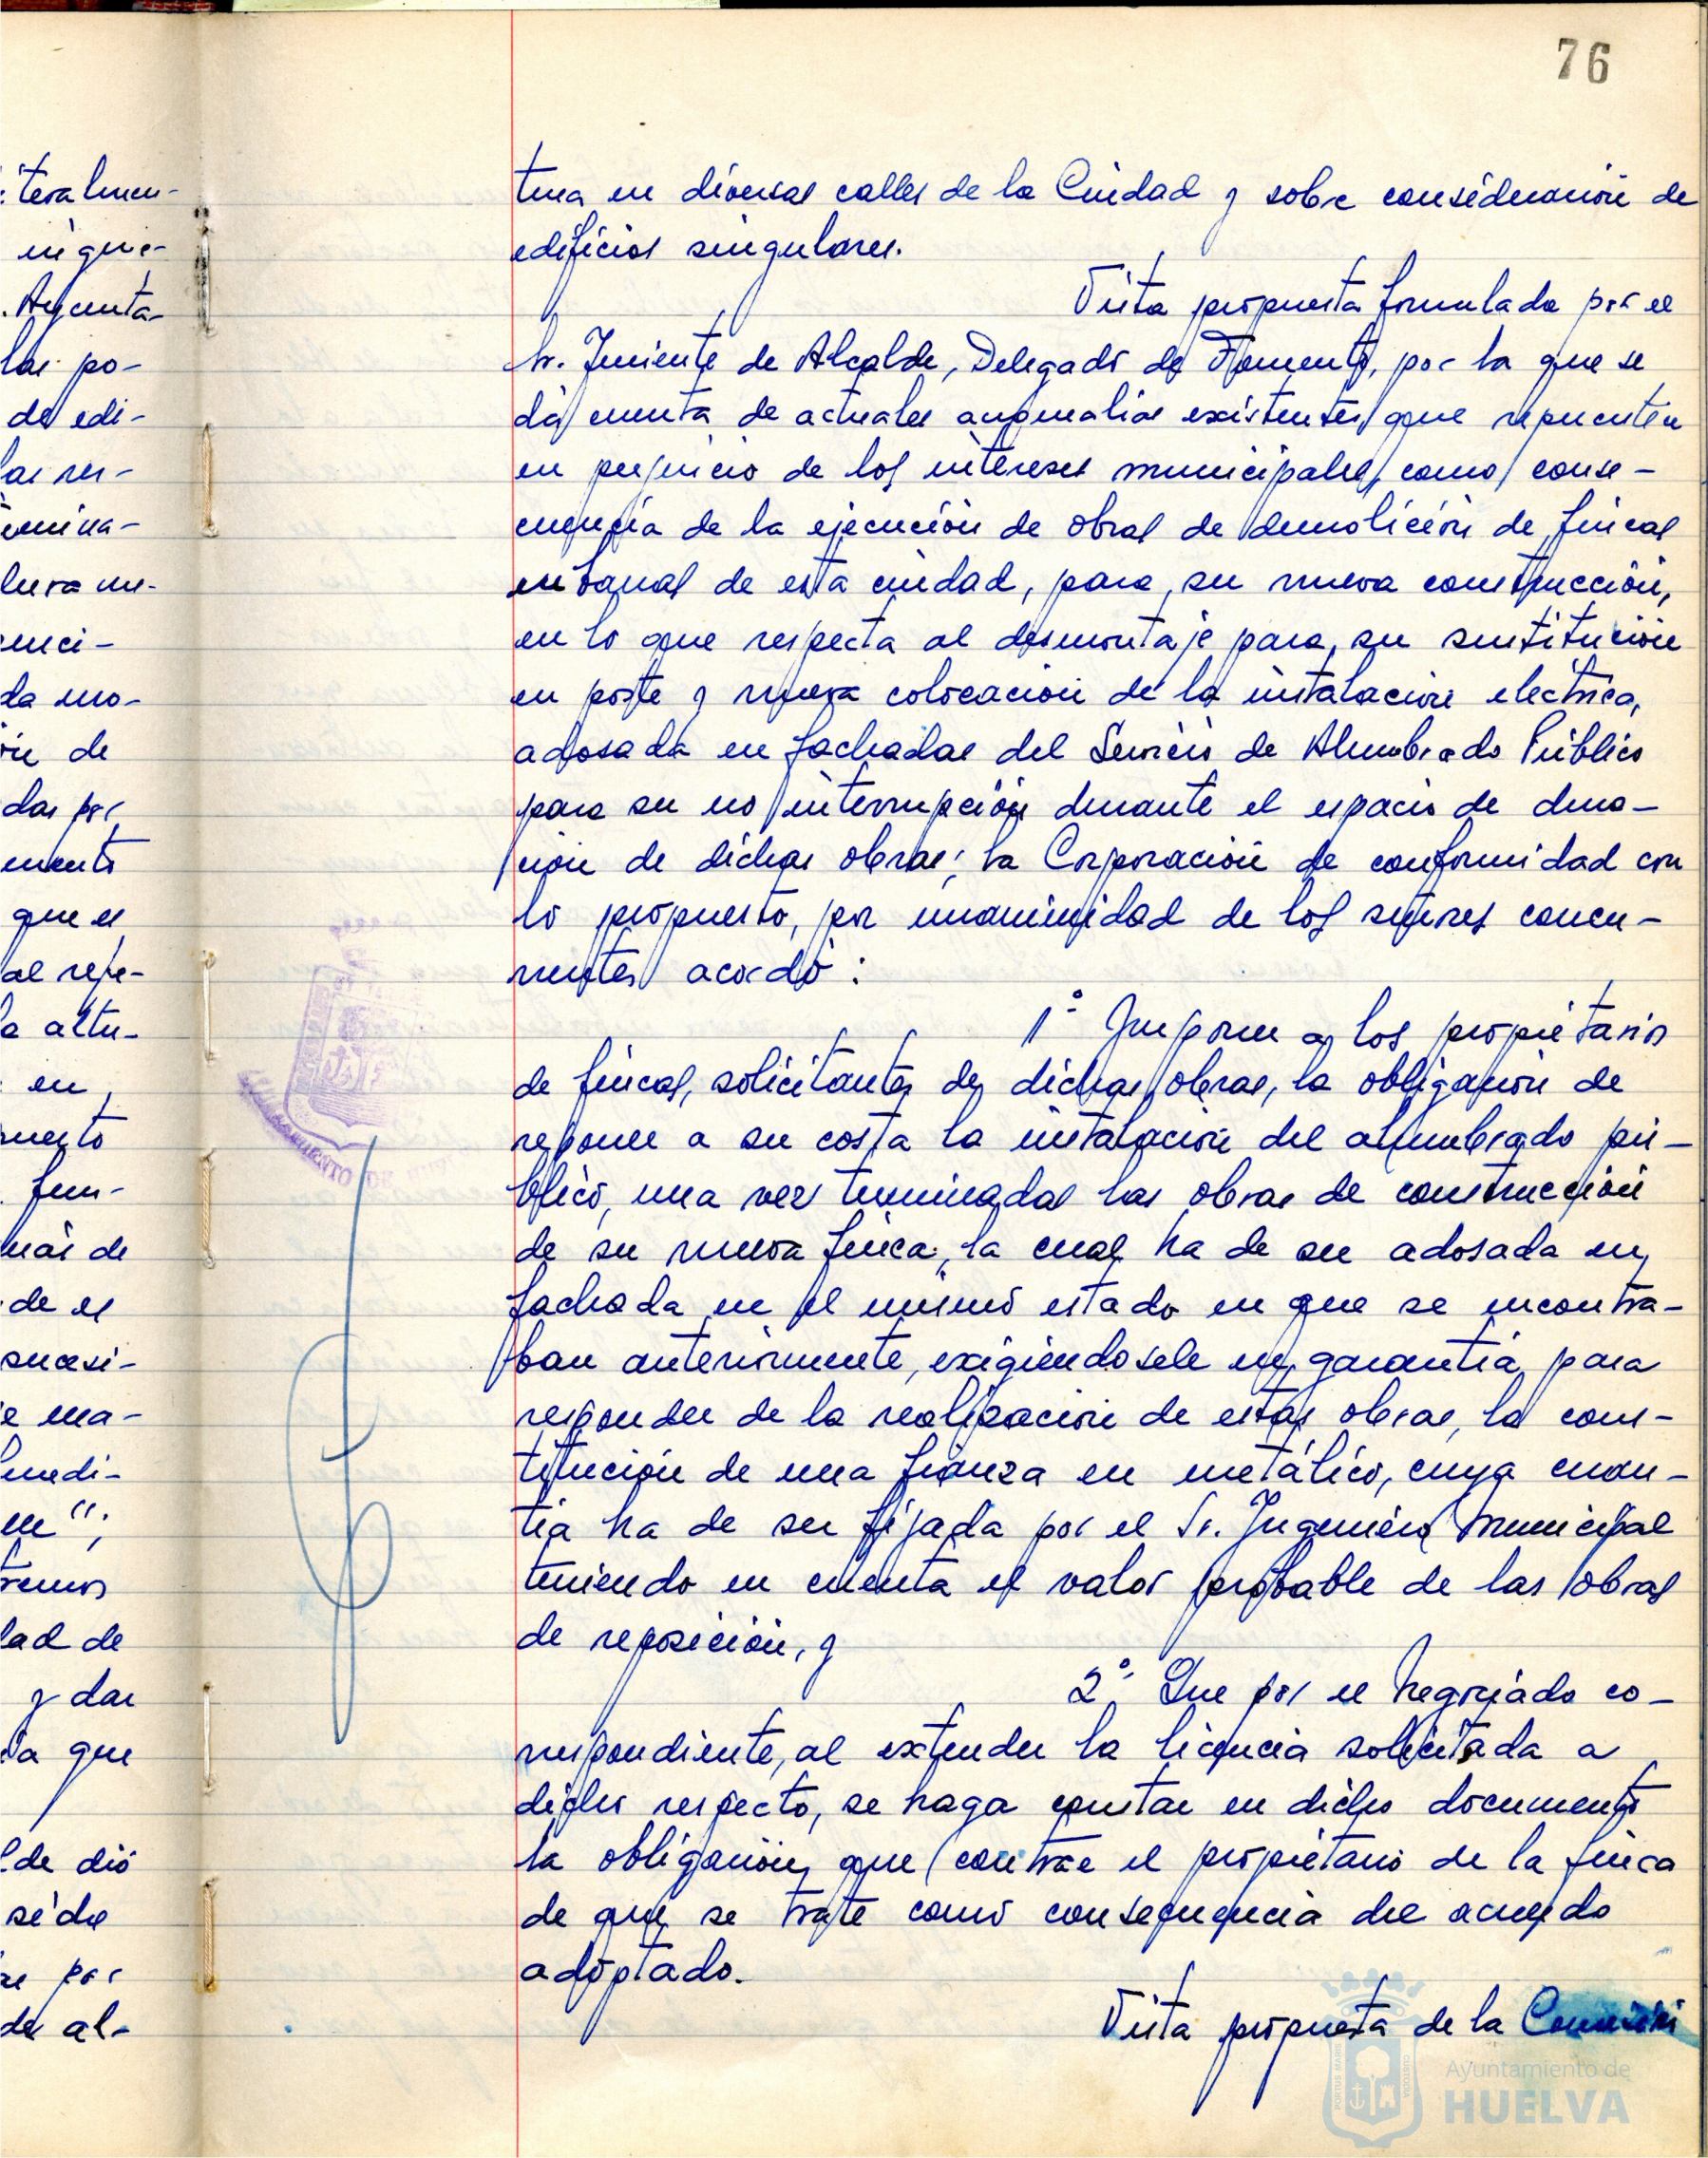 76
iteralmen-
Ayunta-
las po-
de edi-
las res-
emina-
da mo-
de
das por
mento
que el
al refe-
la altu-
en
puesto
fun-
más de
de el
sucesi-
e ma-
medi-
en";
lad de
y dar
que
lde dió
por
de al-
tura en diversas calles de la Ciudad y sobre consideración de
edificios singulares.
Vista propuesta formulada por el
Sr. Teniente de Alcalde, Delegado de Fomento, por la que se
dá cuenta de actuales anomalias existentes que repercuten
en perjuicio de los intereses municipales, como conse-
cuencia de la ejecución de obras de demolición de fincas
urbanas de esta ciudad, para su nueva construcción,
en lo que respecta al desmontaje para su sustitución
en poste y nueva colocación de la instalación electrica,
adosada en fachadas del Servicio de Alumbrado Público
para su no interrupción durante el espacio de dura-
ción de dichas obras; la Corporación de conformidad con
lo propuesto, por unanimidad de los señores concu-
rrentes acordó:
1º Imponer a los propietarios
de fincas, solicitantes de dichas obras, la obligación de
reponer a su costa la instalación del alumbrado pú-
blico, una vez terminadas las obras de construcción
de su nueva finca, la cual ha de ser adosada en
fachada en el mismo estado en que se encontra-
ban anteriormente, exigiendosele en garantía para
responder de la realización de estas obras, la cons-
titución de una fianza en metálico, cuya cuan-
tía ha de ser fijada por el Sr. Ingeniero Municipal
teniendo en cuenta el valor probable de las obras
de reposición, y
2º Que por el Negociado co-
rrespondiente, al extender la licencia solicitada a
dicho respecto, se haga constar en dicho documento
la obligación que contrae el propietario de la finca
de que se trate como consecuencia del acuerdo
adoptado.
Vista propuesta de la Comisión
AYUNTAMIENTO DE
Ayuntamiento de
HUELVA